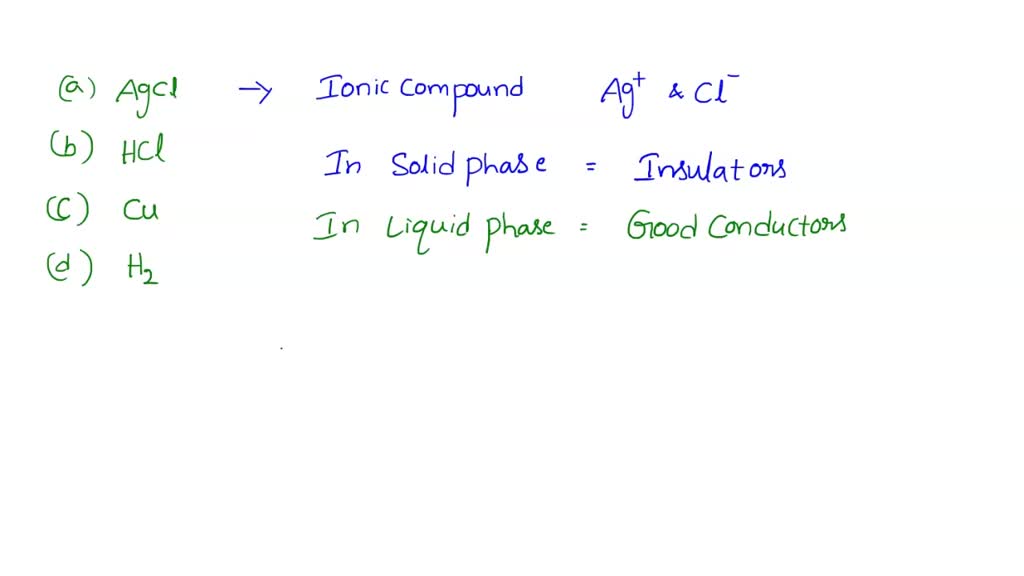 (a) AgCl → Ionic Compound Ag⁺ & Cl⁻
(b) HCl
In Solid phase = Insulators
(C) Cu
In Liquid phase = Good Conductors
(d) H₂